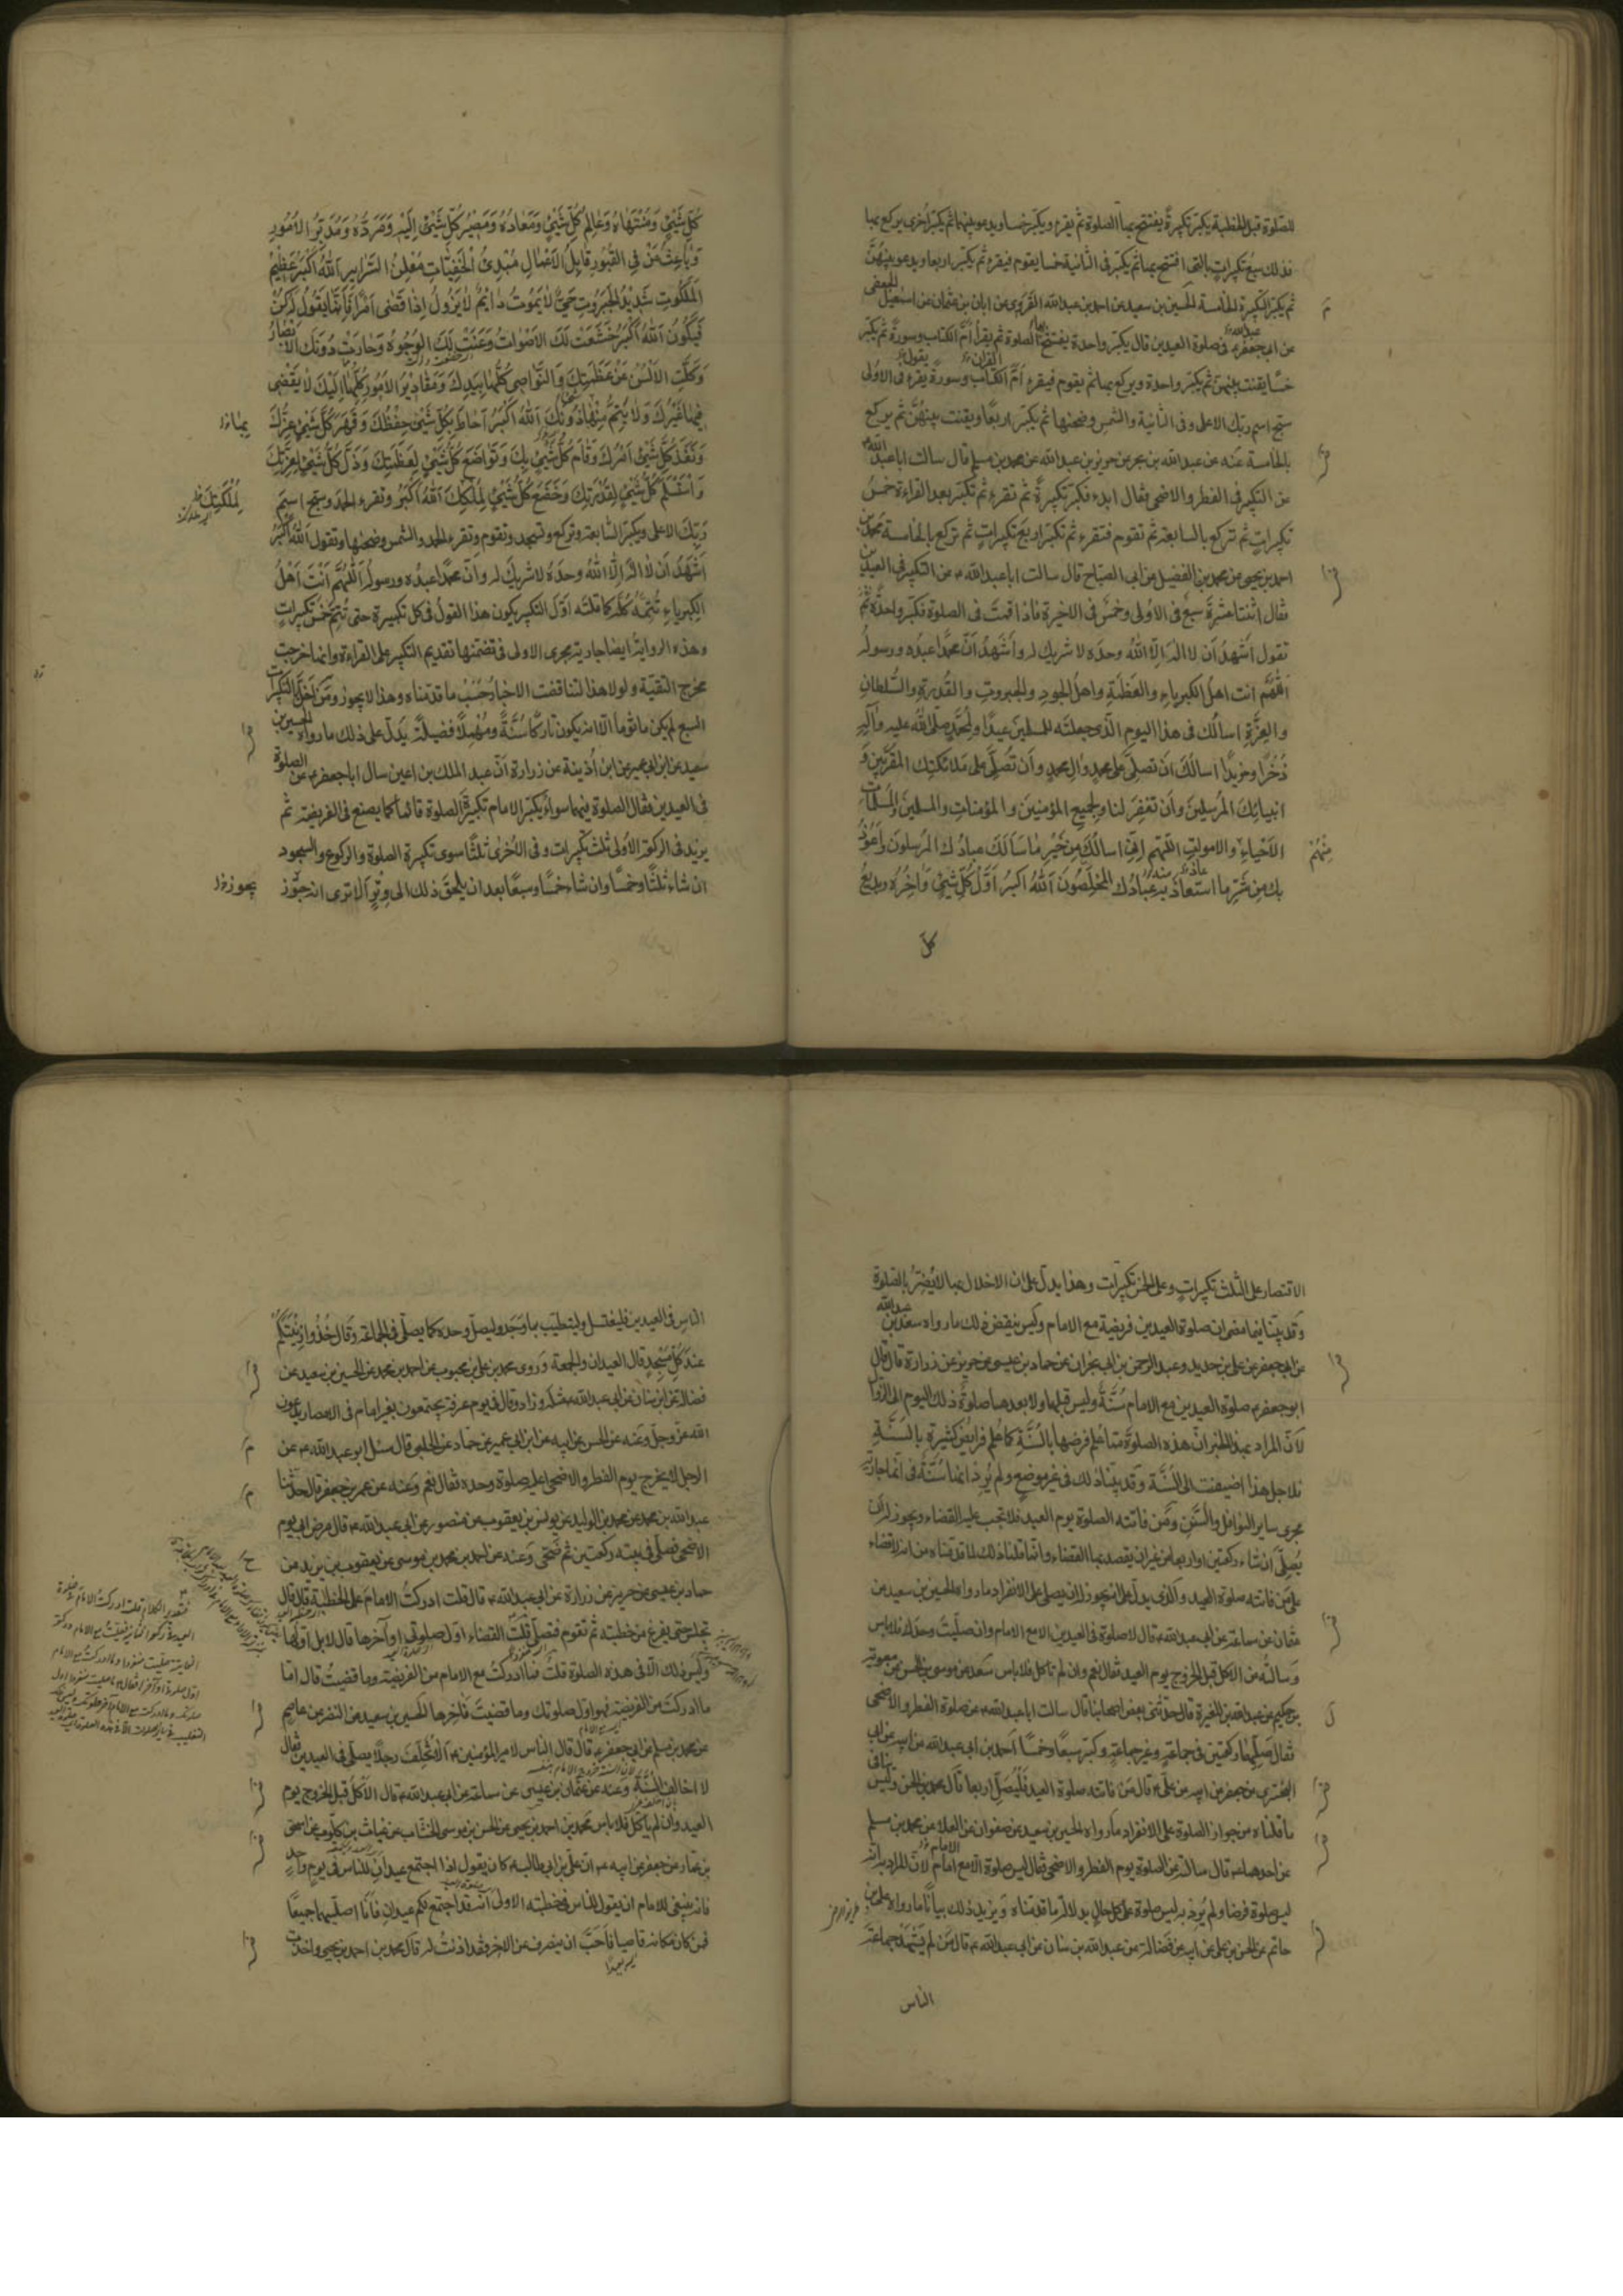 الصلوة قبل الخطبة يكبر تكبيرة يفتتح بها الصلوة ثم يقرء ويكبر خمسا ويدعو بينها ثم يكبر اخرى يركع بها
فذلك سبع تكبيرات بالتي افتتح بها ثم يكبر في الثانية خمسا يقوم فيقرء ثم يكبر اربعا ويدعو بينهن
ثم يكبر التكبيرة الخامسة الحسين بن سعيد عن احمد بن عبدالله القروي عن ابان بن عثمان عن اسمعيل الجعفي
عن ابي جعفر ع في صلوة العيدين قال يكبر واحدة يفتتح بها الصلوة ثم يقرأ ام الكتاب وسورة ثم يكبر
خمسا يقنت بينهن ثم يكبر واحدة ويركع بها ثم يقوم فيقرء ام الكتاب وسورة يقرء في الاولى
سبح اسم ربك الاعلى وفي الثانية والشمس وضحيها ثم يكبر اربعا ويقنت بينهن ثم يركع
بالخامسة عنه عن عبدالله بن بحر عن حريز بن عبدالله عن محمد بن مسلم قال سالت اباعبدالله ع
عن التكبير في الفطر والاضحى فقال ابدء فكبر تكبيرة ثم تقرء ثم تكبر بعد القراءة خمس
تكبيرات ثم تركع بالسابعة ثم تقوم فتقرء ثم تكبر اربع تكبيرات ثم تركع بالخامسة محمد بن
احمد بن يحيى عن محمد بن الفضيل عن ابي الصباح قال سالت اباعبدالله ع عن التكبير في العيدين
فقال اثنتا عشرة سبع في الاولى وخمس في الاخيرة فاذا قمت في الصلوة فكبر واحدة ثم
تقول اشهد ان لا اله الا الله وحده لا شريك له واشهد ان محمدا عبده ورسوله
اللهم انت اهل الكبرياء والعظمة واهل الجود والجبروت والقدرة والسلطان
والعزة اسالك في هذا اليوم الذي جعلته للمسلمين عيدا ولمحمد صلى الله عليه وآله
ذخرا ومزيدا اسالك ان تصلي على محمد وال محمد وان تصلي على ملائكتك المقربين و
انبيائك المرسلين وان تغفر لنا ولجميع المؤمنين والمؤمنات والمسلمين والمسلمات
الاحياء منهم والاموات اللهم اني اسالك من خير ما سالك عبادك المرسلون واعوذ
بك من شر ما استعاذ به عبادك المخلصون الله اكبر اول كل شيئ واخره وبديع
كل
كل شيئ ومنتهاه وعالم كل شيئ ومعاده ومصير كل شيئ اليه ومرده ومدبر الامور
وباعث من في القبور قابل الاعمال مبدئ الخفيات معلن السراير الله اكبر عظيم
الملكوت شديد الجبروت حي لا يموت دايم لا يزول اذا قضى امرا فانما يقول له كن
فيكون الله اكبر خشعت لك الاصوات وعنت لك الوجوه وحارت دونك الابصار
وكلت الالسن عن عظمتك والنواصي كلها بيدك ومقادير الامور كلها اليك لا يقضي
فيها غيرك ولا يتم منها دونك الله اكبر احاط بكل شيئ حفظك وقهر كل شيئ عزك
ونفذ كل شيئ امرك وقام كل شيئ بك وتواضع كل شيئ لعظمتك وذل كل شيئ لعزتك
واستسلم كل شيئ لقدرتك وخضع كل شيئ لملكك الله اكبر وتقرء الحمد وسبح اسم
ربك الاعلى ويكبر السابعة وتركع وتسجد وتقوم وتقرء الحمد والشمس وضحيها وتقول الله اكبر
اشهد ان لا اله الا الله وحده لا شريك له وان محمدا عبده ورسوله اللهم انت اهل
الكبرياء تتمه كله كما قلته اول التكبير يكون هذا القول في كل تكبيرة حتى تتم خمس تكبيرات
وهذه الرواية ايضا جارية مجرى الاولى في تضمنها تقديم التكبير على القراءة وانما خرجت
مخرج التقية ولولا هذا لتناقضت الاخبار حسب ما قدمناه وهذا لا يجوز ومن اخل بالتكبيرات
السبع لم يكن ماثوما الا انه يكون تاركا سنة ومهملا فضيلة يدل على ذلك ما رواه الحسين بن
سعيد عن ابن ابي عمير عن ابن اذينة عن زرارة ان عبد الملك بن اعين سال اباجعفر ع عن الصلوة
في العيدين فقال الصلوة فيهما سواء يكبر الامام تكبيرة الصلوة قائما كما يصنع في الفريضة ثم
يزيد في الركعة الاولى ثلث تكبيرات وفي الاخرى ثلثا سوى تكبيرة الصلوة والركوع والسجود
ان شاء ثلثا وخمسا وان شاء خمسا وسبعا بعد ان يلحق ذلك الى وتر الا ترى انه جوز
الاقتصار على الثلث تكبيرات وعلى الخمس تكبيرات وهذا يدل على ان الاخلال بها لا يضر بالصلوة
وقد بينا فيما مضى ان صلوة العيدين فريضة مع الامام وليس ينقض ذلك ما رواه سعد بن عبدالله
عن ابي جعفر عن علي بن حديد وعبد الرحمن بن ابي نجران عن حماد بن عيسى عن حريز عن زرارة قال قال
ابو جعفر ع صلوة العيدين مع الامام سنة وليس قبلهما ولا بعدهما صلوة ذلك اليوم الى الزوال
لان المراد بهذا الخبر ان هذه الصلوة مما علم فرضها بالسنة كما علم فرايض كثيرة بالسنة
فلاجل هذا اضيفت الى السنة وقد بينا ذلك في غير موضع ولم يرد انها سنة في انها جارية
مجرى ساير النوافل والسنن ومن فاتته الصلوة يوم العيد فلا تجب عليه القضاء ويجوز له ان
يصلي ان شاء ركعتين او اربعا من غير ان يقصد بها القضاء وانما قلنا ذلك لما قدمناه من انه لا قضاء
على من فاتته صلوة العيد والذي يدل على انه يجوز له ان يصلي على الانفراد ما رواه الحسين بن سعيد عن
عثمان عن سماعة عن ابي عبدالله ع قال لا صلوة في العيدين الا مع الامام وان صليت وحدك فلا باس
وسالته عن الاكل قبل الخروج يوم العيد فقال نعم وان لم تاكل فلا باس سعد عن موسى بن الحسن عن معوية
بن حكيم عن عبدالله بن المغيرة قال حدثني بعض اصحابنا قال سالت اباعبدالله ع عن صلوة الفطر والاضحى
فقال صلهما ركعتين في جماعة وغير جماعة وكبر سبعا وخمسا احمد بن ابي عبدالله عن ابيه عن ابي
البختري عن جعفر عن ابيه عن علي ع قال من فاتته صلوة العيد فليصل اربعا قال محمد بن الحسن وليس ينافي
ما قلناه من جواز الصلوة على الانفراد ما رواه الحسين بن سعيد عن صفوان عن العلا عن محمد بن مسلم
عن احدهما ع قال سالته عن الصلوة يوم الفطر والاضحى فقال ليس صلوة الا مع امام لان المراد به انه
ليس صلوة فرضا ولم يرد به ليس صلوة على كل حال بدلالة ما قدمناه ويزيد ذلك بيانا ما رواه علي بن
حاتم عن الحسن بن علي عن ابيه عن فضالة عن عبدالله بن سنان عن ابي عبدالله ع قال من لم يشهد جماعة
الناس
الناس في العيدين فليغتسل وليتطيب بما وجد وليصل وحده كما يصلي في الجماعة وقال خذوا زينتكم
عند كل مسجد قال العيدان والجمعة وروى محمد بن علي بن محبوب عن احمد بن محمد عن الحسين بن سعيد عن
فضالة عن ابن سنان عن ابي عبدالله ع مثله وزاد وقال في يوم عرفة يجتمعون بغير امام في الامصار يدعون
الله عز وجل وعنه عن الحسن عن ابيه عن ابن ابي عمير عن حماد عن الحلبي قال سئل ابو عبدالله ع عن
الرجل لا يخرج يوم الفطر والاضحى اعليه صلوة وحده فقال نعم وعنه عن عمر بن جعفر قال حدثنا
عبدالله بن محمد عن محمد بن الوليد عن يونس بن يعقوب عن منصور عن ابي عبدالله ع قال مرض ابي يوم
الاضحى فصلى في بيته ركعتين ثم ضحى وعنه عن احمد بن محمد بن موسى عن يعقوب بن يزيد عن
حماد بن عيسى عن حريز عن زرارة عن ابي عبدالله ع قال قلت ادركت الامام على الخطبة قال قال
تجلس حتى يفرغ من خطبته ثم تقوم فتصلي قلت القضاء اول صلوتي او آخرها قال لا بل اولها
وليس ذلك الا في هذه الصلوة قلت فما ادركت مع الامام من الفريضة وما قضيت قال اما
ما ادركت من الفريضة فهو اول صلوتك وما قضيت فآخرها الحسين بن سعيد عن النضر عن عاصم
عن محمد بن مسلم عن ابي جعفر ع قال قال الناس لامير المؤمنين ع الا تخلف رجلا يصلي في العيدين فقال
لا اخالف السنة وعنه عن عثمان بن عيسى عن سماعة عن ابي عبدالله ع قال الاكل قبل الخروج يوم
العيد وان لم ياكل فلا باس محمد بن احمد بن يحيى عن الحسن بن موسى الخشاب عن غياث بن كلوب عن اسحق
بن عمار عن جعفر عن ابيه ع ان علي بن ابي طالب ع كان يقول اذا اجتمع عيدان للناس في يوم واحد
فانه ينبغي للامام ان يقول للناس في خطبته الاولى انه قد اجتمع لكم عيدان فانا اصليهما جميعا
فمن كان مكانه قاصيا فاحب ان ينصرف عن الاخر فقد اذنت له قال محمد بن احمد بن يحيى واخذت